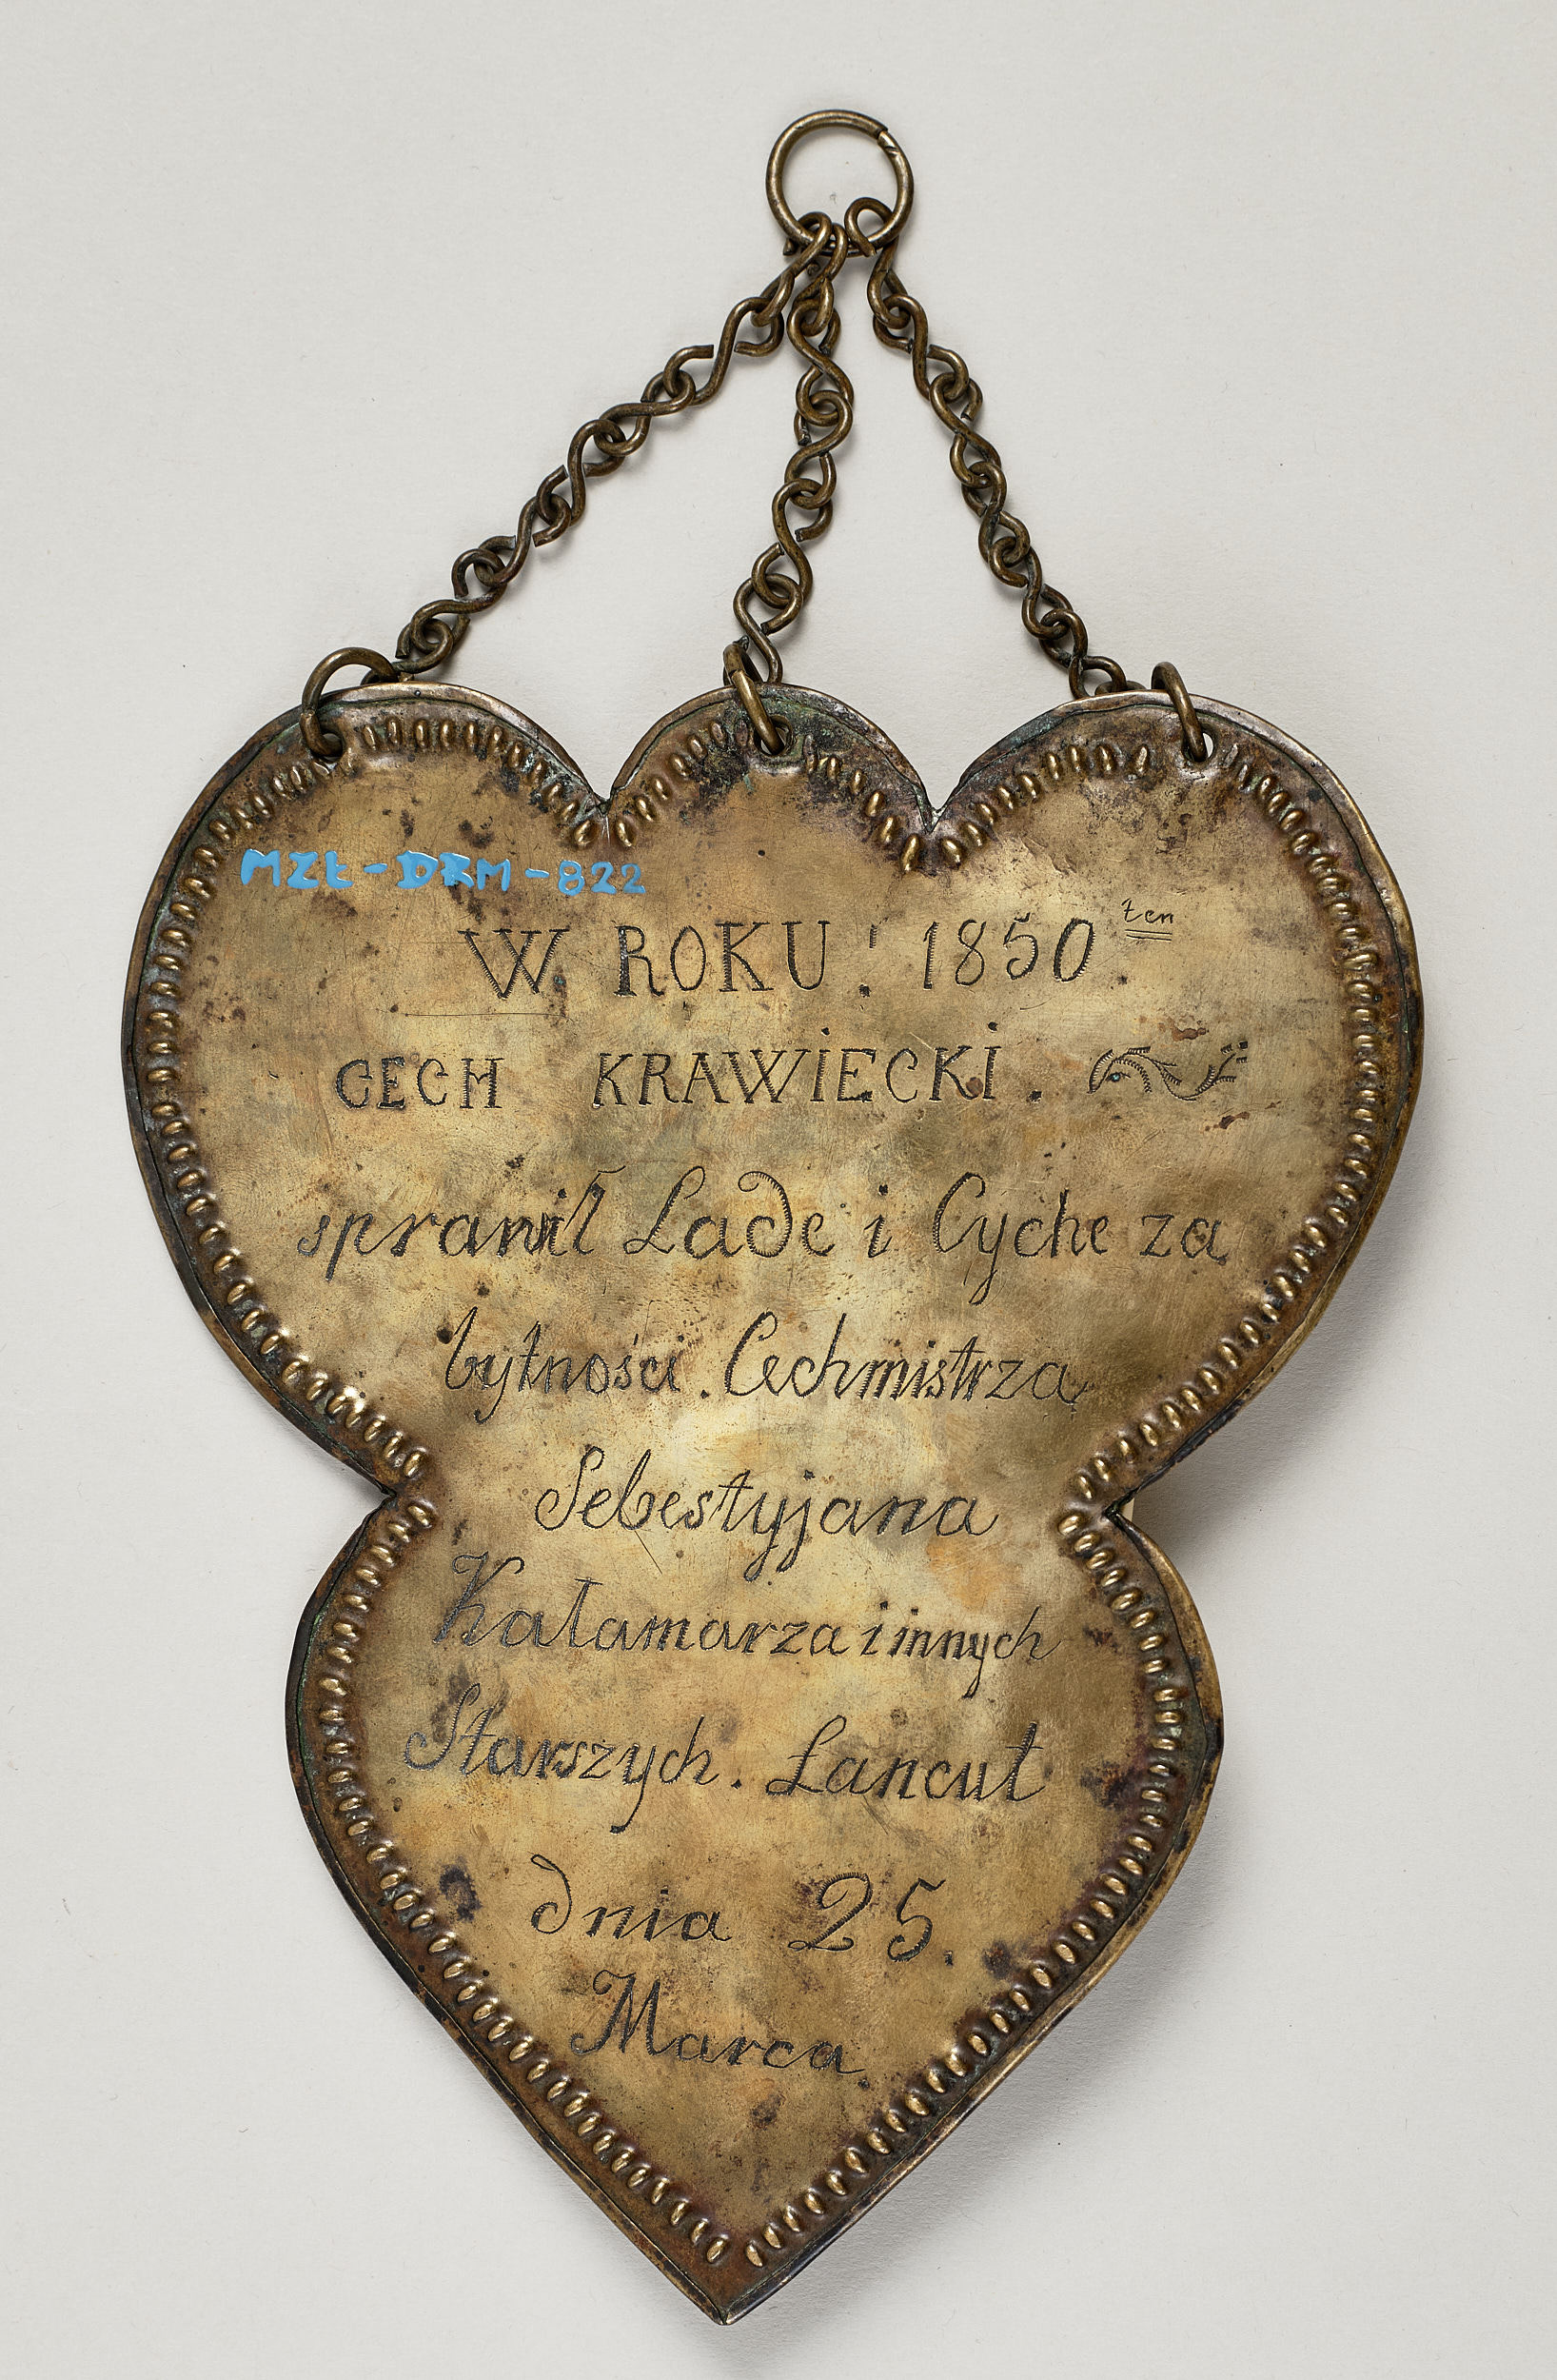 MZŁ-DRM-822
W ROKU : 1850 ten
CECH KRAWIECKI .
sprawił Lade i Cyche za
bytności . Cechmistrza
Sebestyjana
Kałamarza i innych
Starszych . Łancut
dnia 25.
Marca